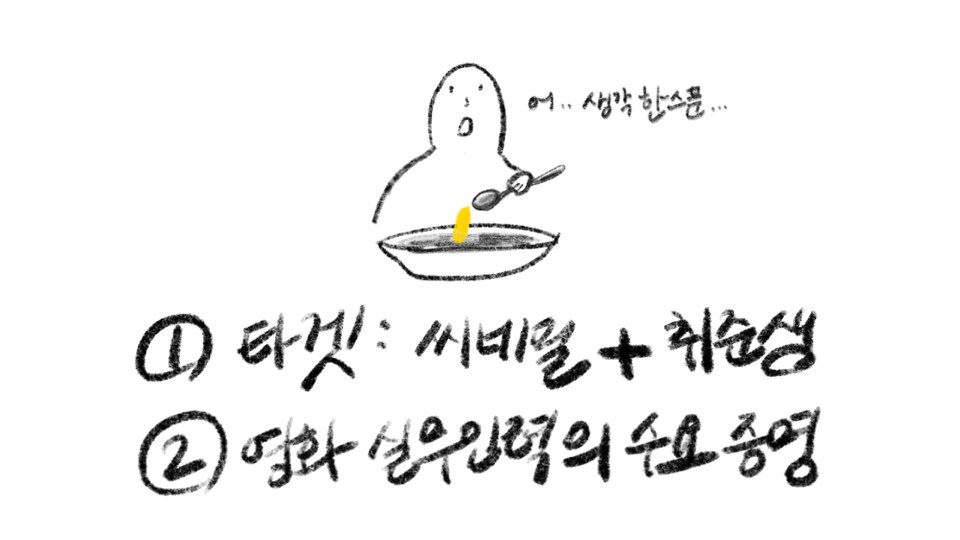 어.. 생각 한스푼...
① 타겟: 씨네필 + 취준생
② 영화 실무인력의 수요 증명